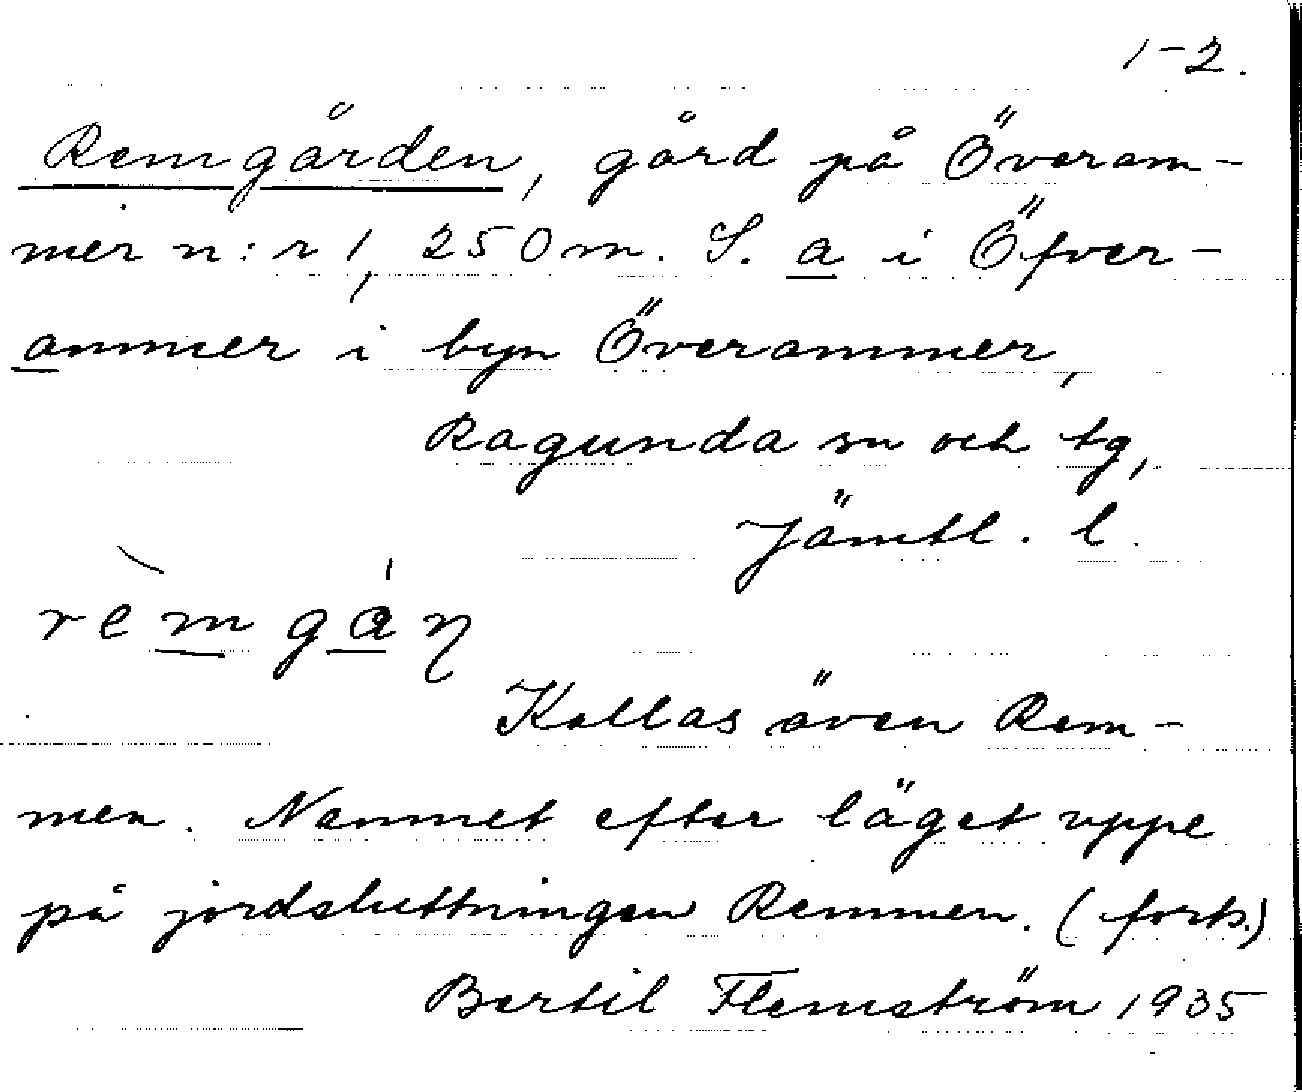 1-2.
Remgården, gård på Överam-
mer n:r 1, 250 m. S. a i Öfver-
ammer i byn Överammer,
Ragunda sn och tg,
Jämtl. l.
rèmgáṇ
Kallas även Rem-
men. Namnet efter läget uppe
på jordsluttningen Remmen. (forts.)
Bertil Flemström 1935